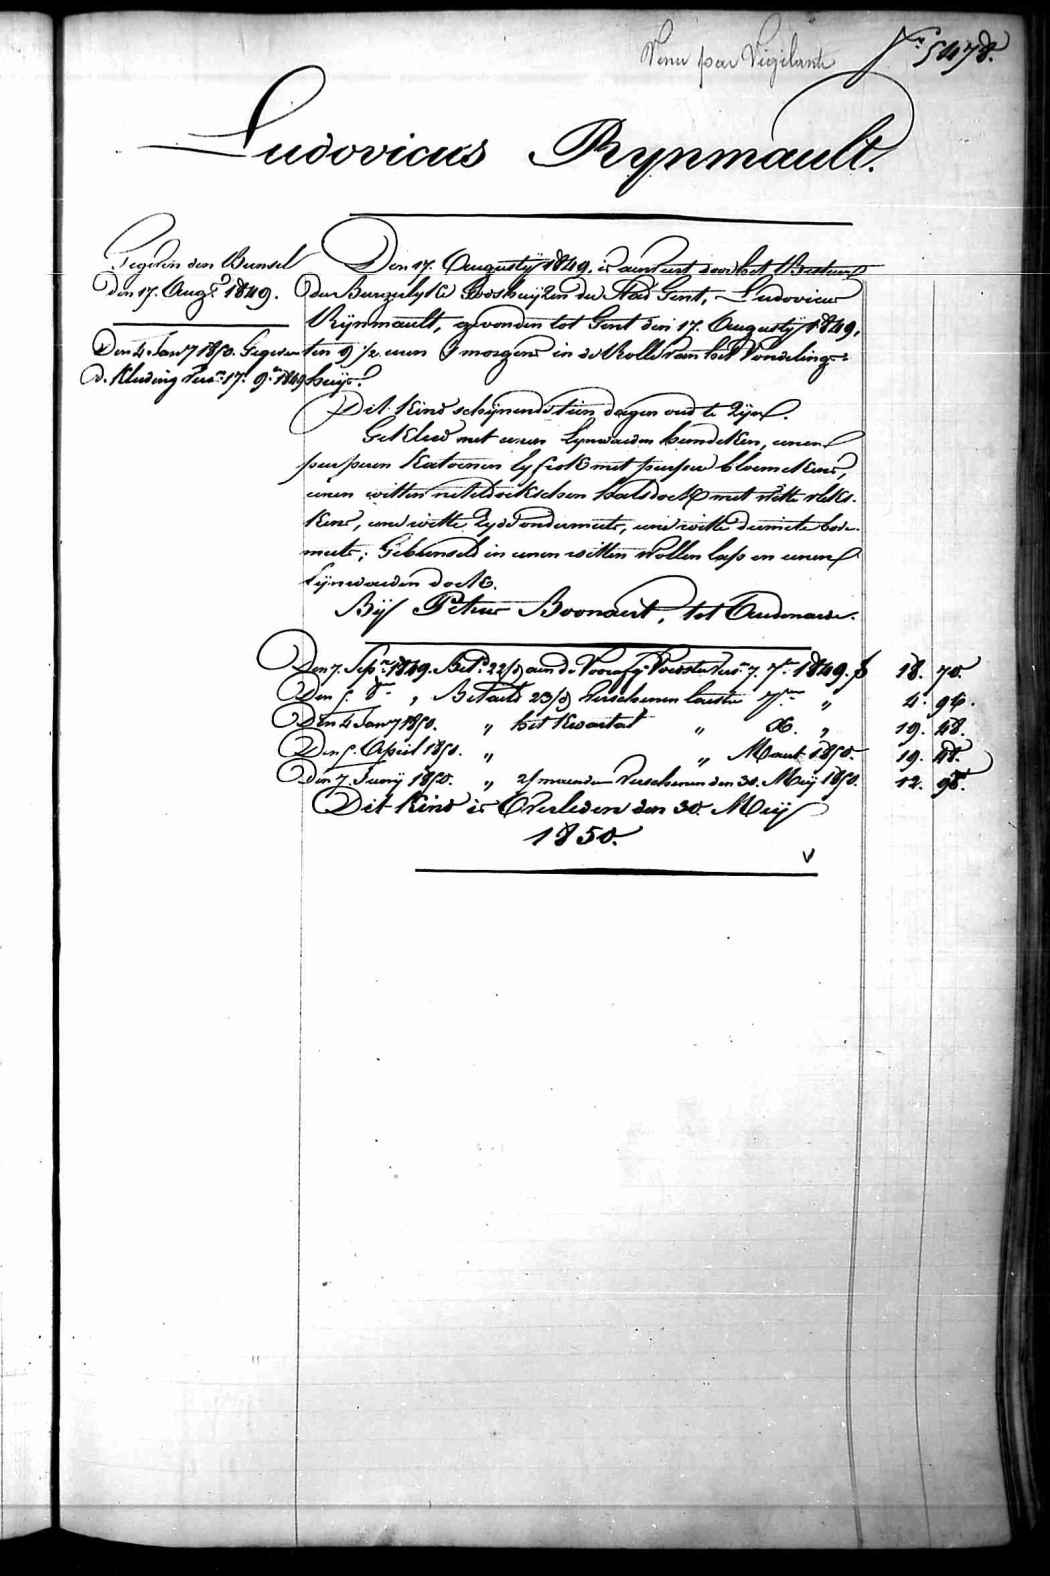 Venu par Vigilante
N.º 5478.
Ludovicus Rynmault.
Gegeven den Bunsel
den 17. Aug.s 1849.
Den 4. Janry 1850. Gegeven
d. Kleeding Vers.n 17. 9.r 1849
Den 17. Augustij 1849. is aenveirt door het Bestuur
der Burgerlyke Godshuyzen der Stad Gent, Ludovicus
Rijnmault, gevonden tot Gent den 17. Augustij 1849,
ten 9 1/2 uren 's morgens in de Rolle van het Vondeling-
huijs.
Dit Kind schijnende tien dagen oud te zijn.
Gekleed met eenen Lynwaden hemdeken, eenen
purperen Katoenen lyfrok met purpere bloemekens,
eenen witten neteldoekschen halsdoek met witte vleks-
kens, eene witte zyde ondermuts, eene witte dimete bove-
muts; Gebunseld in eenen witten wollen lap en eenen
Lijnwaeden doek.
Bij Petrus Boonaert, tot Audenaerde.
Den 7. Sep.r 1849. Bet.d 22/d aen de Voorafg. Voedster Vers.n 7. 7.r 1849. f 18. 70.
Den 5. 8.r „ Betaeld 23/d Verschenen laeste 7.r „ 4. 94.
Den 4 Janry 1850. „ het Kwartael „ X. „ 19. 48.
Den 5. April 1850. „ „ Maert 1850. 19. 48.
Den 7. Junij 1850. „ 2/maenden Verschenen den 30. Meij 1850. 12. 98.
Dit Kind is Overleden den 30. Meij
1850.
V